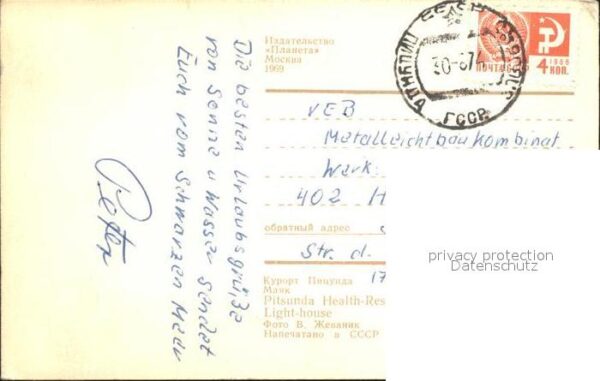 Издательство
«Планета»
Москва
1969
Die besten Urlaubsgrüße
von Sonne u Wasser sendet
Euch vom Schwarzen Meer
Peter
ГССР
ПОЧТА СССР
1966
4 КОП.
VEB
Metalleichtbaukombinat
Werk
402 H
обратный адрес
Str. d.
17
privacy protection
Datenschutz
Курорт Пицунда
Маяк
Pitsunda Health-Res
Light-house
Фото В. Жеваник
Напечатано в СССР